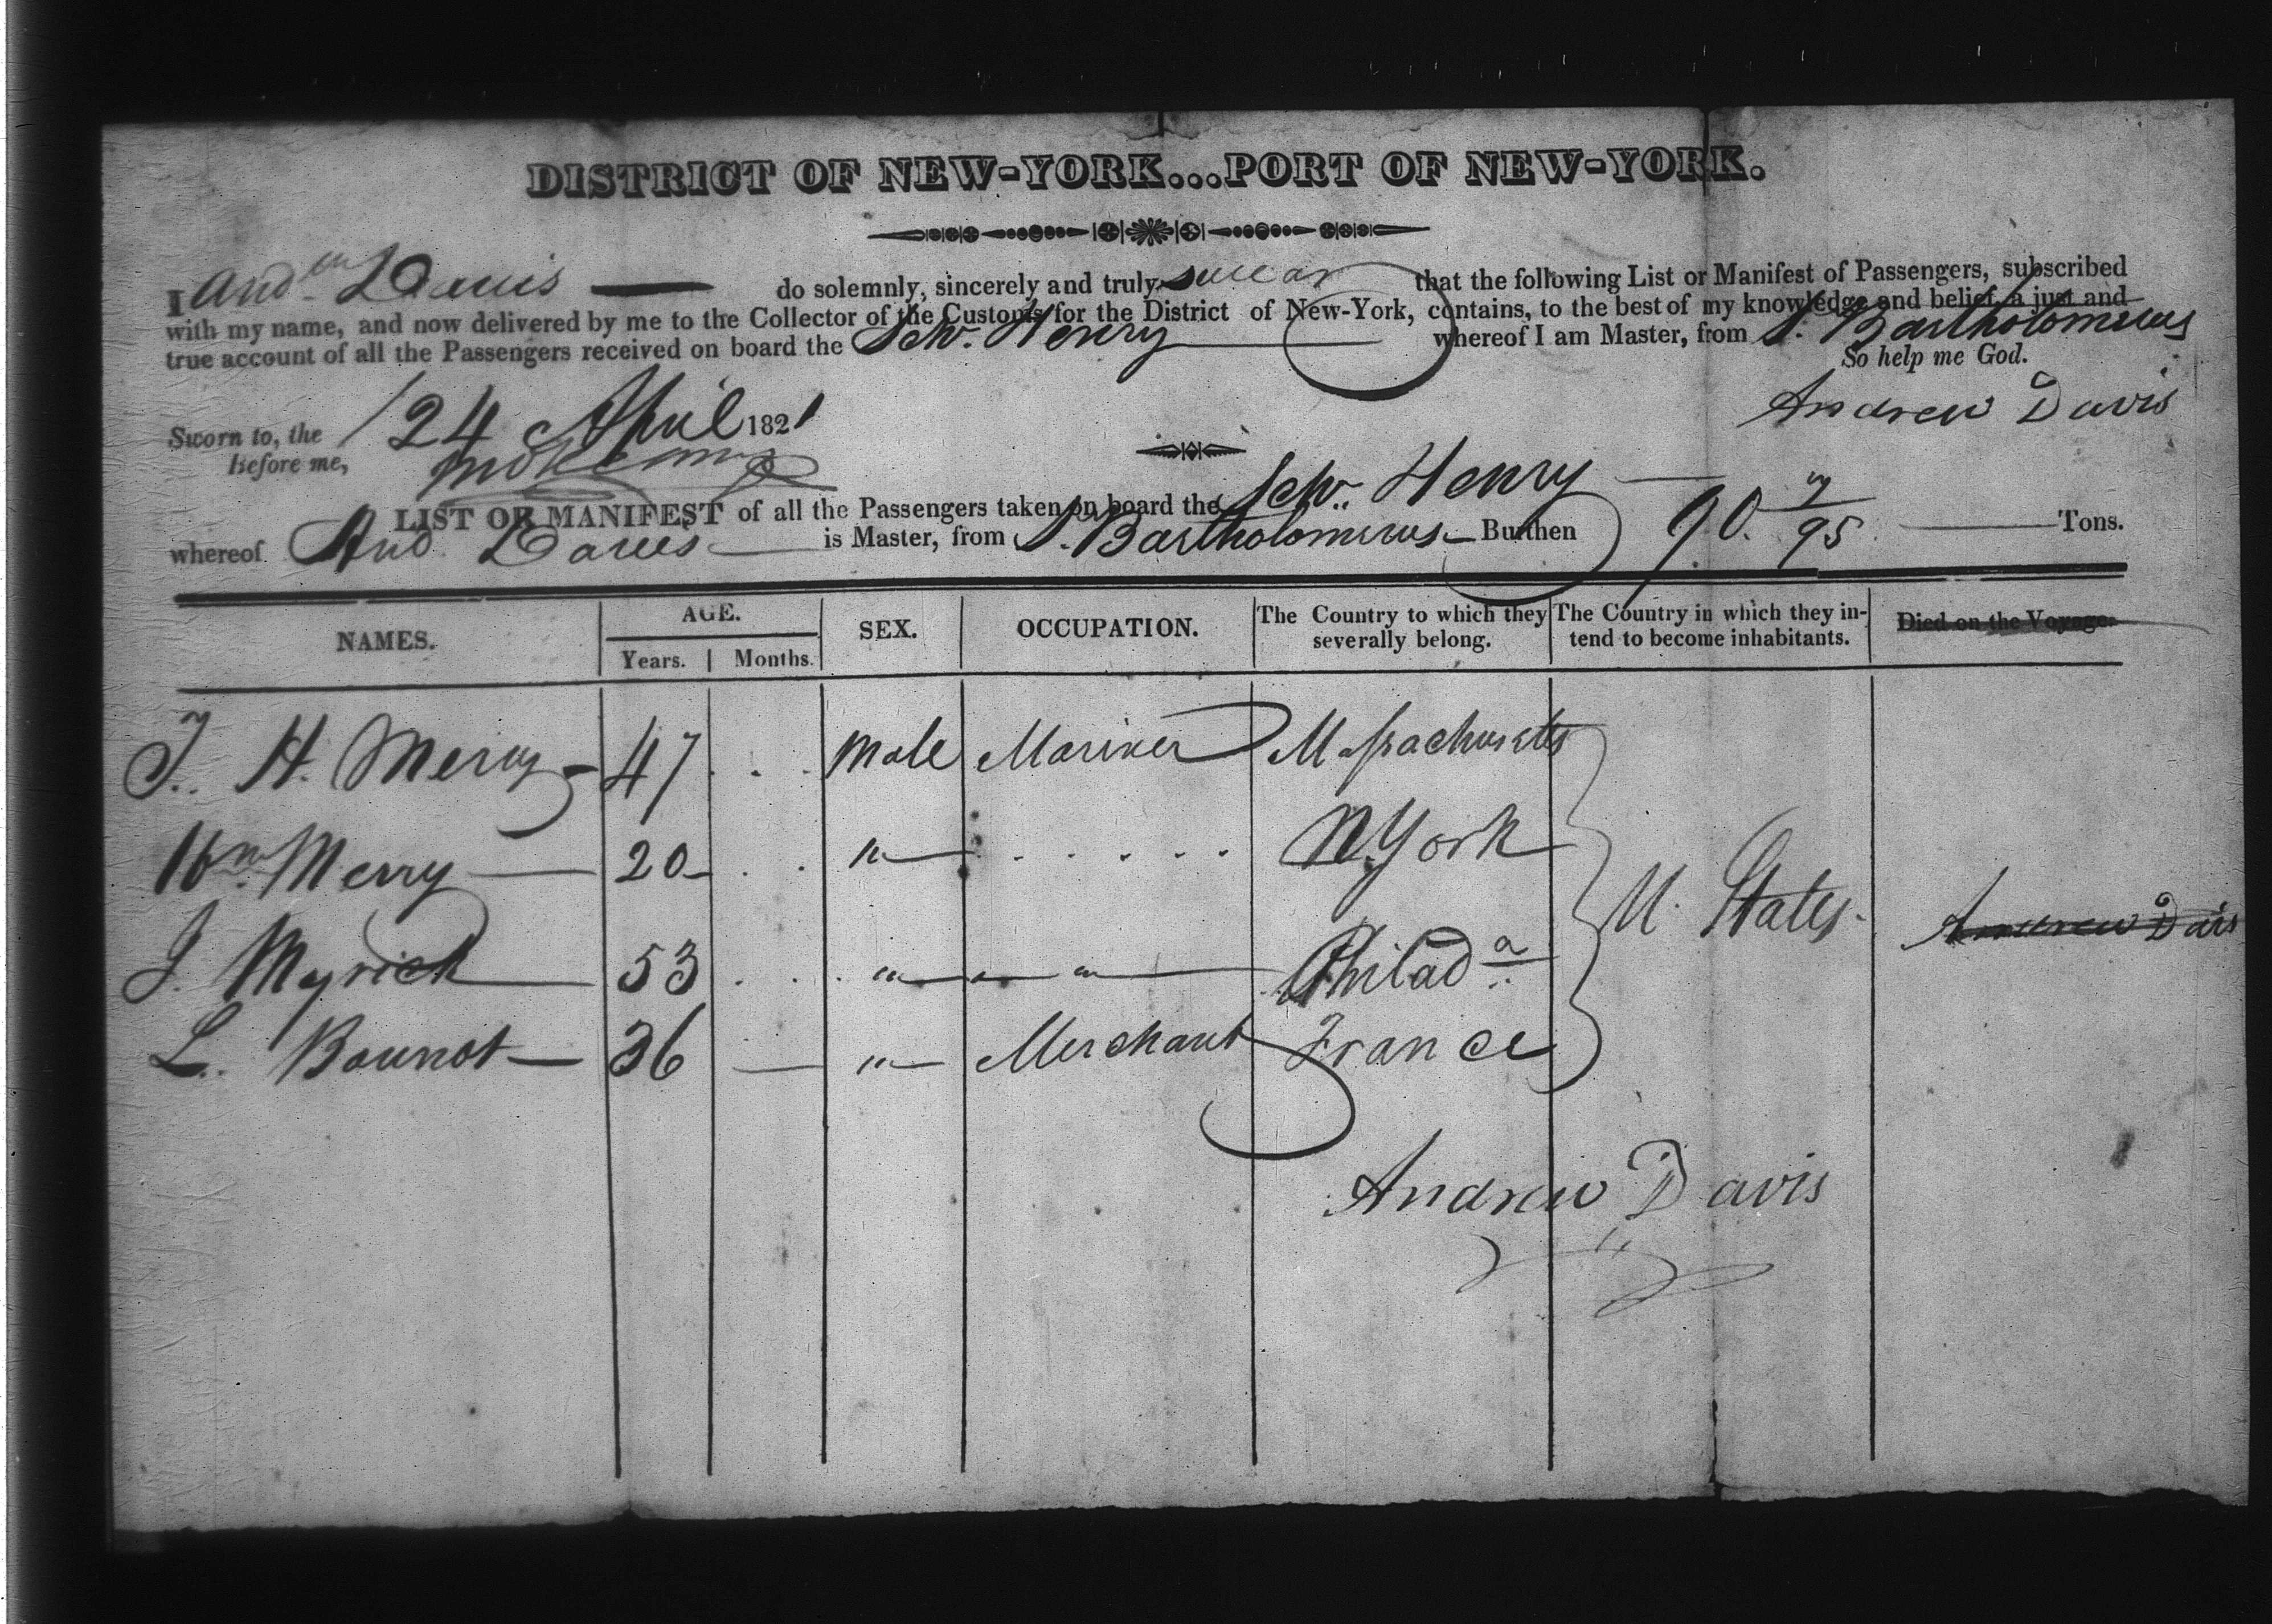 DISTRICT OF NEW-YORK...PORT OF NEW-YORK.
I Andw Davis do solemnly, sincerely and truly swear that the following List or Manifest of Passengers, subscribed
with my name, and now delivered by me to the Collector of the Customs for the District of New-York, contains, to the best of my knowledge and belief, a just and
true account of all the Passengers received on board the Schr. Henry whereof I am Master, from St. Bartholomews
So help me God.
Sworn to, the 24 April 1821
Andrew Davis
Before me,
LIST OR MANIFEST of all the Passengers taken on board the Schr. Henry
whereof And. Davis is Master, from St. Bartholomews Burthen 90. /95 Tons.
NAMES. AGE. SEX. OCCUPATION. The Country to which they severally belong. The Country in which they in-tend to become inhabitants. Died on the Voyage.
Years. Months.
J. H. Merry 47 Male Mariner Massachusetts
Wm. Merry 20 " N.York
J. Myrick 53 " " " Philada
U. States. Andrew Davis
L. Bounot 36 " Merchant France
Andrew Davis